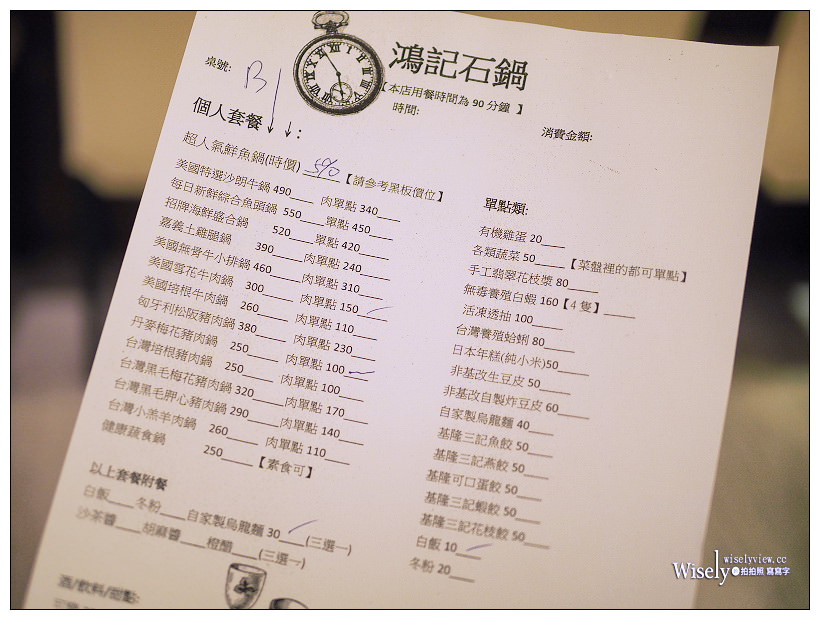 鴻記石鍋
【本店用餐時間為 90 分鐘 】
桌號: B
時間:
消費金額:
個人套餐↓ ↓:
超人氣鮮魚鍋(時價)____【請參考黑板價位】
美國特選沙朗牛鍋 490____ 肉單點 340____
每日新鮮綜合魚頭鍋 550____單點 450____
招牌海鮮盛合鍋 520____單點 420____
嘉義土雞腿鍋 390____肉單點 240____
美國無骨牛小排鍋 460____肉單點 310____
美國雪花牛肉鍋 300____肉單點 150____
美國培根牛肉鍋 260____肉單點 110____
匈牙利松阪豬肉鍋 380____肉單點 230____
丹麥梅花豬肉鍋 250____肉單點 100____
台灣培根豬肉鍋 250____肉單點 100____
台灣黑毛梅花豬肉鍋 320____肉單點 170____
台灣黑毛胛心豬肉鍋 290____肉單點 140____
台灣小羔羊肉鍋 260____肉單點 110____
健康蔬食鍋 250____【素食可】
以上套餐附餐
白飯____冬粉____自家製烏龍麵 30____(三選一)
沙茶醬____胡麻醬____橙醋____(三選一)
酒/飲料/甜點:
單點類:
有機雞蛋 20____
各類蔬菜 50____【菜盤裡的都可單點】
手工翡翠花枝漿 80____
無毒養殖白蝦 160【4 隻】____
活凍透抽 100____
台灣養殖蛤蜊 80____
日本年糕(純小米)50____
非基改生豆皮 50____
非基改自製炸豆皮 60____
自家製烏龍麵 40____
基隆三記魚餃 50____
基隆三記燕餃 50____
基隆可口蛋餃 50____
基隆三記蝦餃 50____
基隆三記花枝餃 50____
白飯 10____
冬粉 20____
wiselyview.cc
Wisely 拍拍照 寫寫字